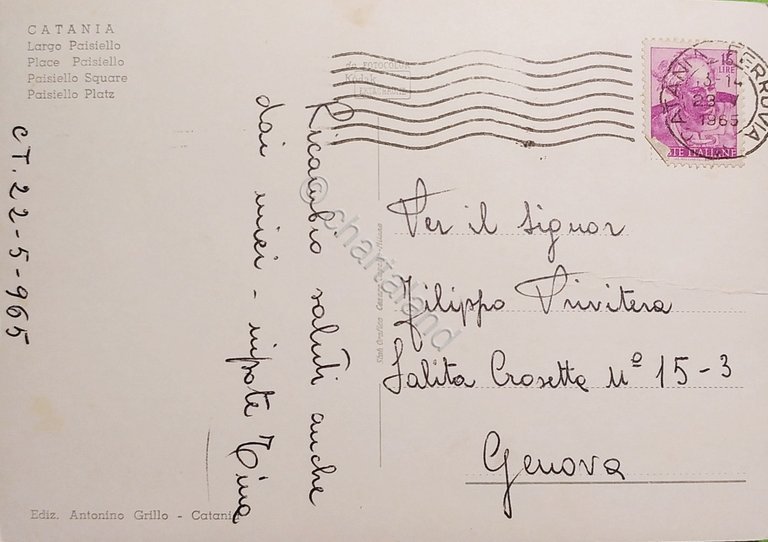 CATANIA
Largo Paisiello
Place Paisiello
Paisiello Square
Paisiello Platz
CT. 22-5-965
Ricambio saluti anche
dai miei - nipote Tina
da FOTOCOLOR
Kodak
EKTACHROME
CATANIA FERROVIA
1965
15
LIRE
TE ITALIANE
Per il Signor
Filippo Privitera
Salita Crosetta Nº 15-3
Genova
© chartaland
Ediz. Antonino Grillo - Catania